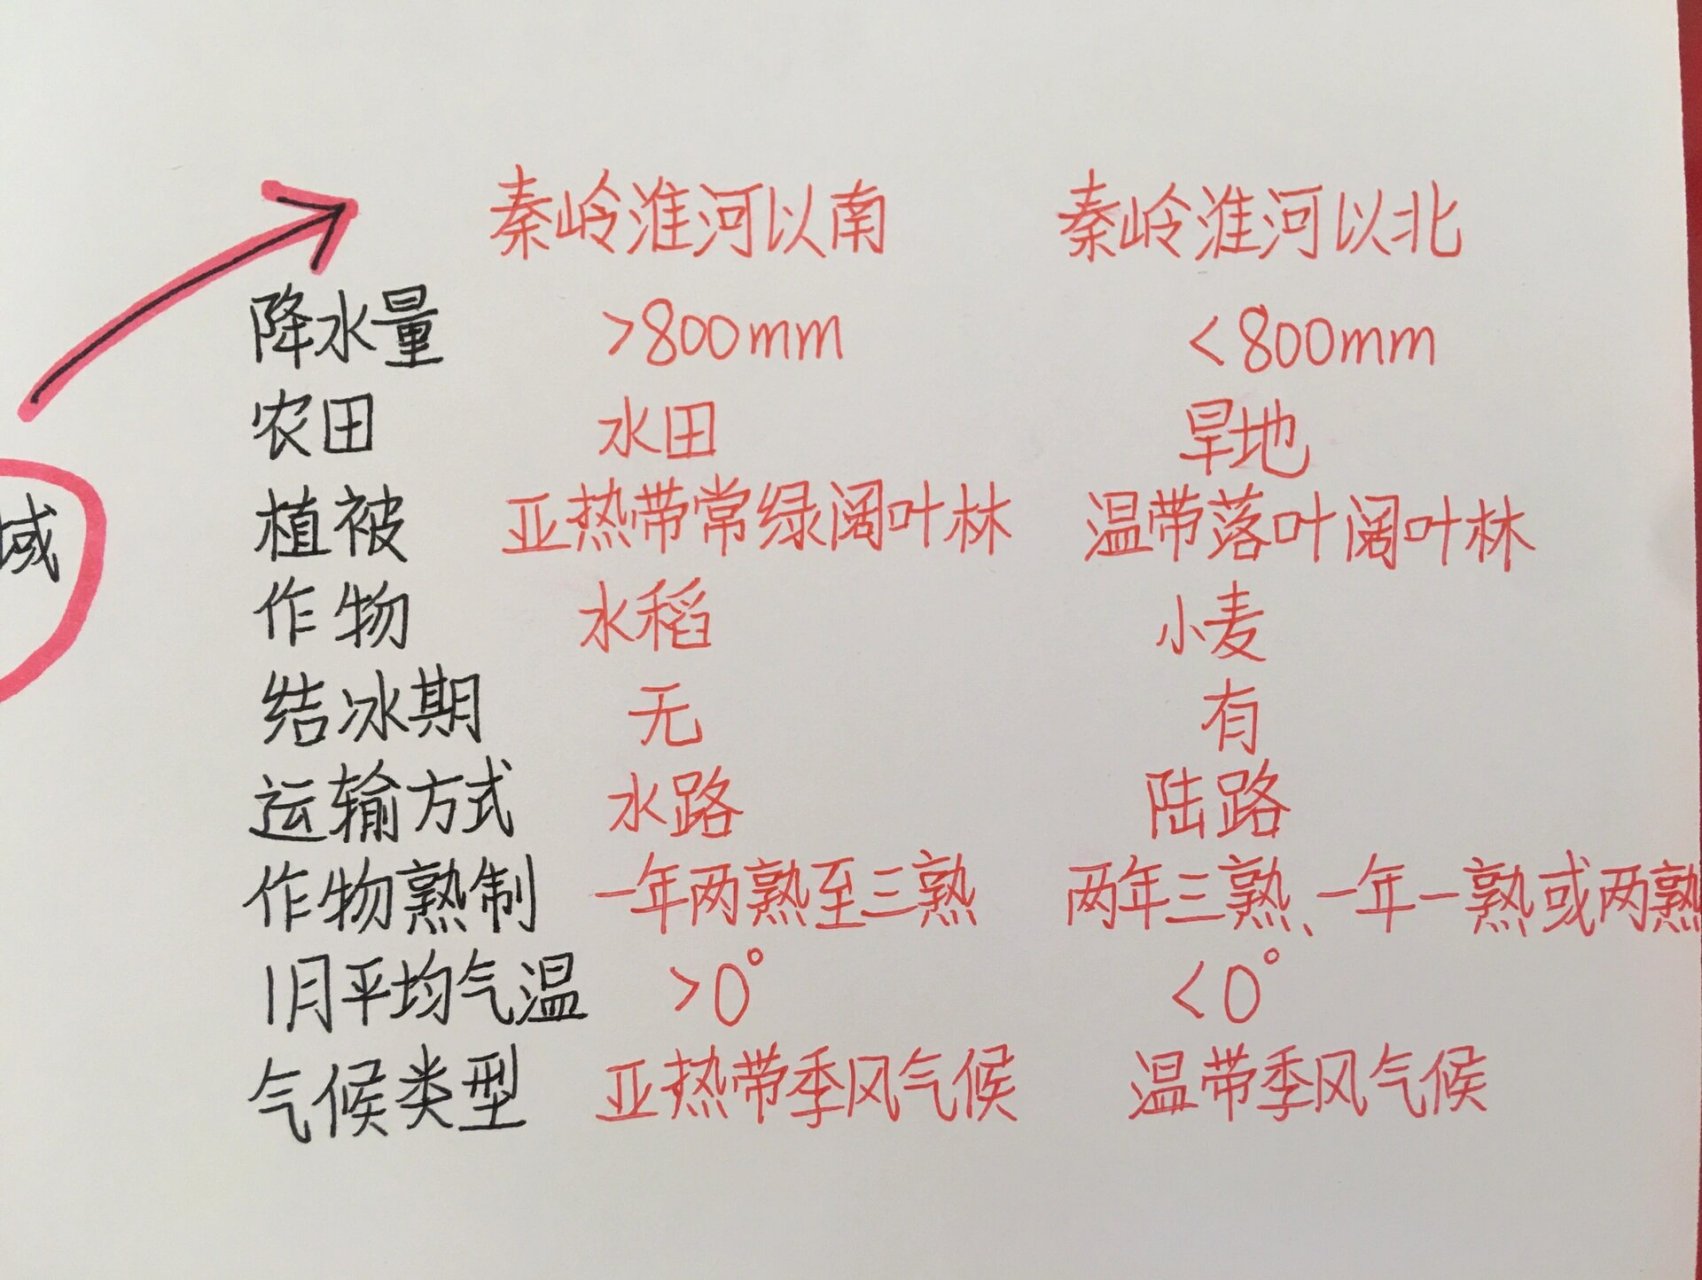 秦岭淮河以南 秦岭淮河以北
降水量 >800mm <800mm
农田 水田 旱地
域
植被 亚热带常绿阔叶林 温带落叶阔叶林
作物 水稻 小麦
结冰期 无 有
运输方式 水路 陆路
作物熟制 一年两熟至三熟 两年三熟、一年一熟或两熟
1月平均气温 >0° <0°
气候类型 亚热带季风气候 温带季风气候